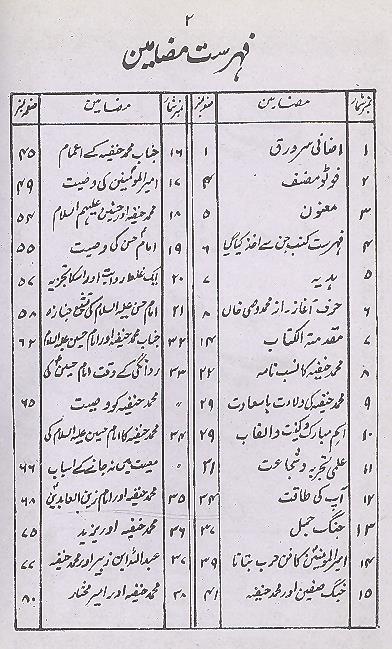 ۲
فہرست مضامین
نمبر شمار مضامین صفحہ نمبر
۱ اضافی سرورق ۱
۲ فوٹو مصنف ۴
۳ معنون ۵
۴ فہرست کتب جن سے اخذ کیا گیا ۶
۵ ہدیہ ۷
۶ حرف آغاز۔ از محمد وصی خاں ۸
۷ مقدمۃ الکتاب ۱۴
۸ محمد حنفیہ کا نسب نامہ ۲۲
۹ محمد حنفیہ کی ولادت باسعادت ۲۹
۱۰ اسم مبارک و کنیت والقاب ۲۹
۱۱ علمی تجزیہ و شجاعت ۳۱
۱۲ آپ کی طاقت ۳۴
۱۳ جنگ جمل ۳۷
۱۴ امیر المومنینؑ کا فن حرب بتانا ۳۹
۱۵ جنگ صفین اور محمد حنفیہ ۴۱
نمبر شمار مضامین صفحہ نمبر
۱۶ جناب محمد حنفیہ کے اعمام ۴۵
۱۷ امیر المومنین کی وصیت ۴۹
۱۸ محمد حنفیہ اور حسنین علیہم السلام ۵۴
۱۹ امام حسن کی وصیت ۵۵
۲۰ ایک غلط روایت اور اسکا تجزیہ ۵۷
۲۱ امام حسن علیہ السلام کی جنازہ ۵۸
۳۲ جناب محمد حنفیہ اور امام حسین علیہ السلام ۶۲
۳۳ روانگی کے وقت امام حسینؑ کی
〃 محمد حنفیہ کو وصیت ۶۵
۳۴ محمد حنفیہ کا امام حسین علیہ السلام کی
〃 معیت میں نہ جانے کے اسباب ۶۶
۳۵ محمد حنفیہ اور امام زین العابدینؑ ۶۸
۳۶ محمد حنفیہ اور یزید ۷۵
۳۷ عبداللہ ابن زبیر اور محمد حنفیہ ۷۷
۳۸ محمد حنفیہ اور امیر مختار ۸۰